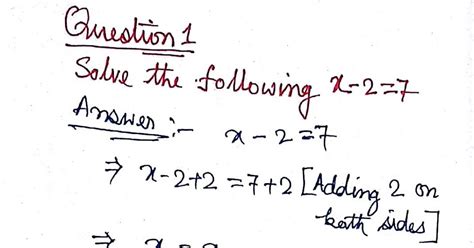 Question 1
Solve the following x-2=7
Answer :- x - 2 = 7
⇒ x-2+2 = 7+2 [Adding 2 on
both sides]
⇒ x =